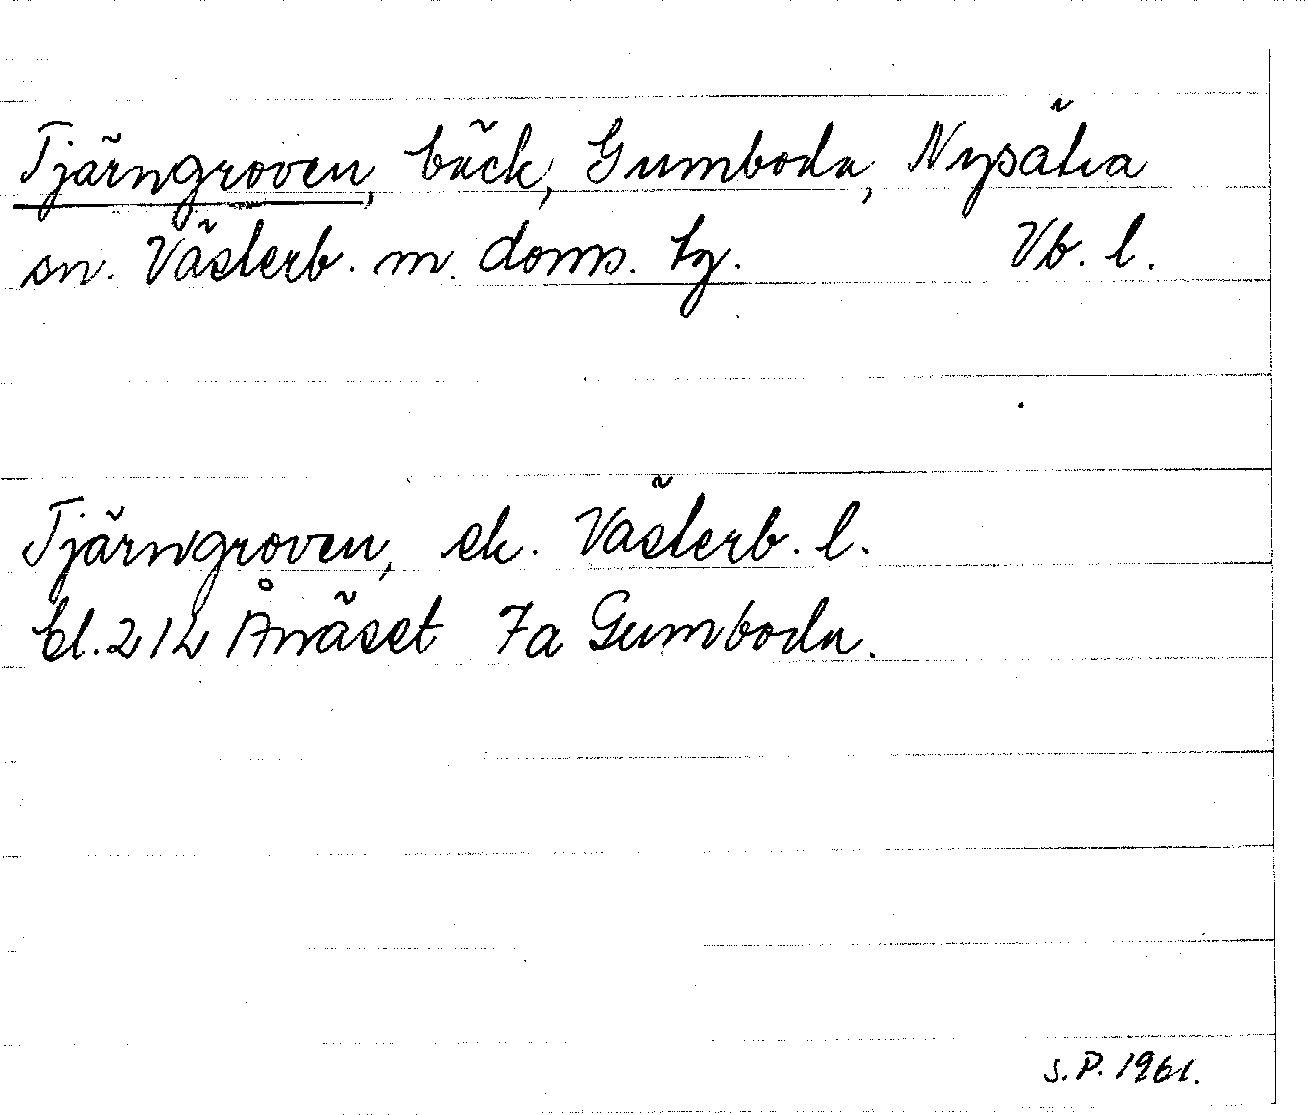 Tjärngroven, bäck, Gumboda, Nysätra
sn. Västerb. m. doms. tg. Vb. l.
Tjärngroven, ek. Västerb. l.
bl. 212 Ånäset 7a Gumboda.
S.P. 1961.